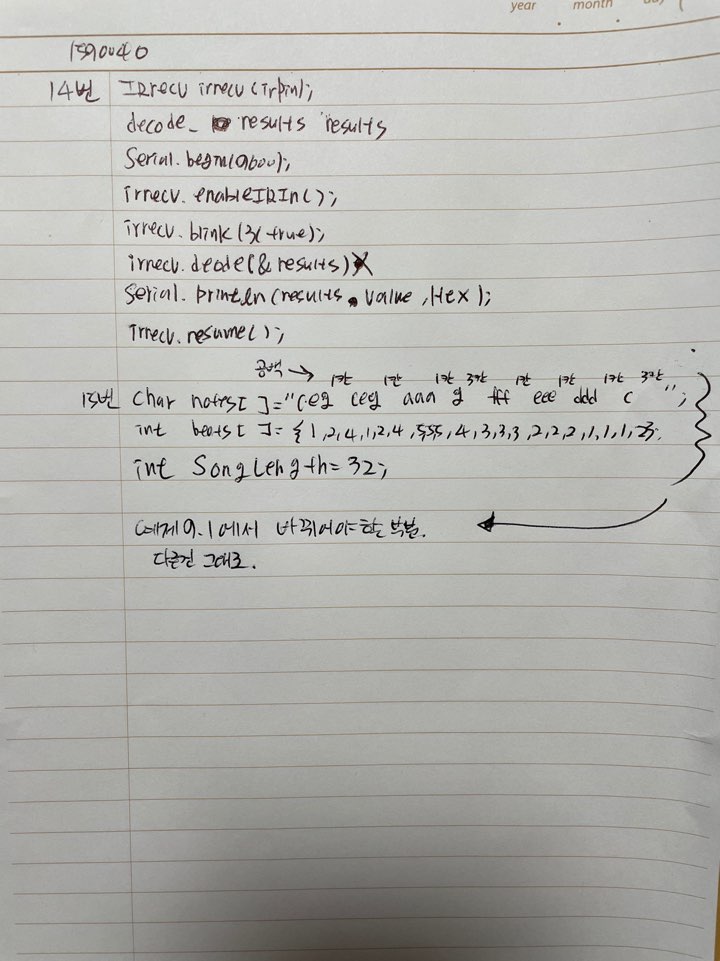 year month day
1590040
14번 IRrecv irrecv(irpin);
decode_ results results
Serial.begin(9600);
irrecv.enableIRIn();
irrecv.blink(3(true);
irrecv.decode(&results)
Serial.println(results.value,Hex);
irrecv.resume();
공백→ 1칸 1칸 1칸 3칸 1칸 1칸 1칸 3칸
15번 Char notes[ ]="ceg ceg aaa g fff eee ddd c ";
int beats[ ]={1,2,4,1,2,4,5,5,5,4,3,3,3,2,2,2,1,1,1,2};
int SongLength=32;
예제9.1에서 바뀌어야할 부분.
다른건 그대로.